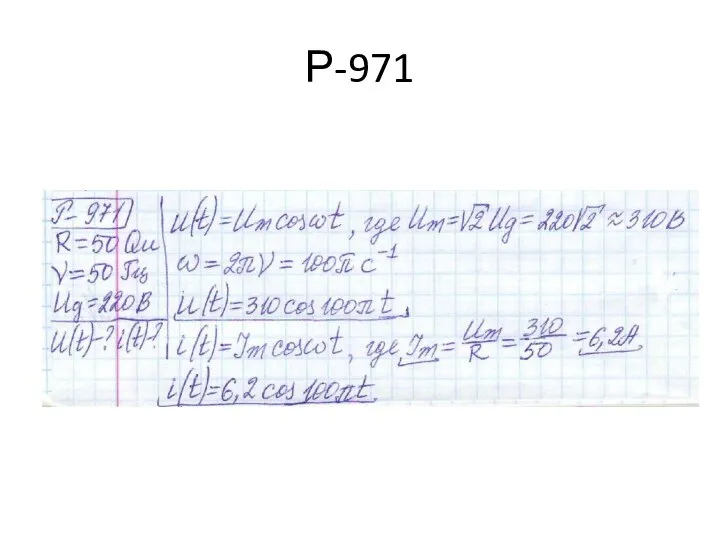 Р-971
Р-971
R=50 Ом
ν=50 Гц
Uд=220В
U(t)-? i(t)-?
u(t)=Um cosωt, где Um=√2 Uд=220√2 ≈310В
ω=2πν=100π с⁻¹
u(t)=310cos100πt,
i(t)=Im cosωt, где Im=Um/R=310/50=6,2А
i(t)=6,2cos100πt.